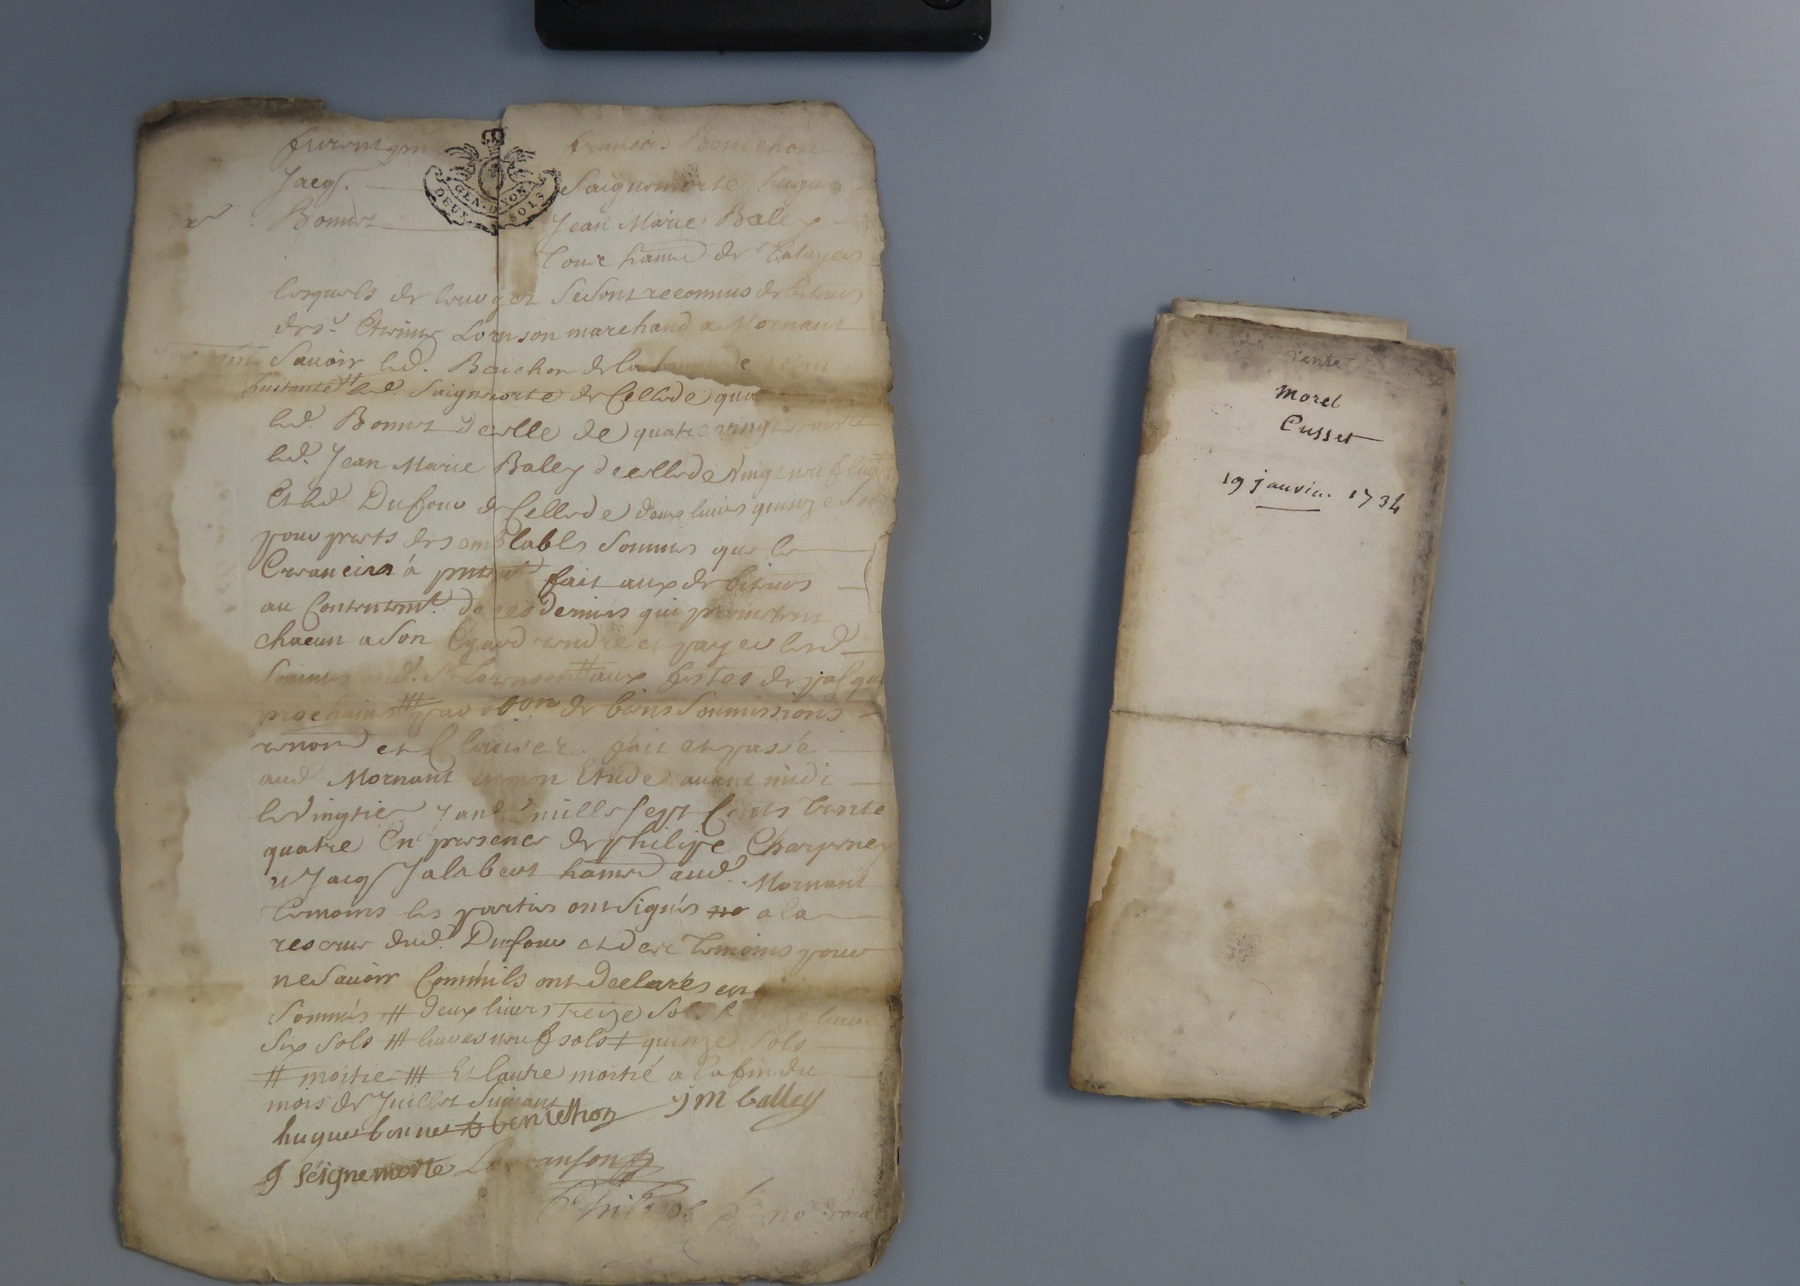 furent
françois Benichon
Jacq. Saignemorte hugues
Bonnet Jean Marie Baley
GEN. LYON
DEUX SOLS
tous de Taluyers
lesquels de leur gré se sont reconnus debiteurs
de sr. Etienne Lornson marchand a Mornant
Savoir led. Benichon de la somme de
huitante # led. Saignemorte de Celle de
led. Bonnet de celle de quatre vingt
led. Jean Marie Baley de celle de vingt
Et led. Dufour de Celle de deux livres quinze sols
pour prets de semblables sommes que le
Creancier a fait aux debiteurs
au Contentemt. de ces derniers qui promettent
chacun a son Egard rendre et payer lesd.
sommes aud. Sr Lornson # aux festes de
prochaines ### de biens soumissions
renon et Clauses. fait et passé
aud. Mornant en mon Etude avant midi
le vingtie Janv. mille sept Cents trente
quatre En presence de philipe Charpeney
et Jacq Jalabert aud. Mornant
temoins les parties ont signés a la
reserve dud. Dufour et des temoins pour
ne savoir Comm'ils ont declarés
sommés # deux livres treize sols
six sols ## livres neuf sols ‡ quinze sols
# moitié ### Et l'autre moitié a la fin du
mois de Juillet suivant
hugues bonnet benichon j m balley
J seignemorte
vente
Morel
Cusset
19 janvier 1734